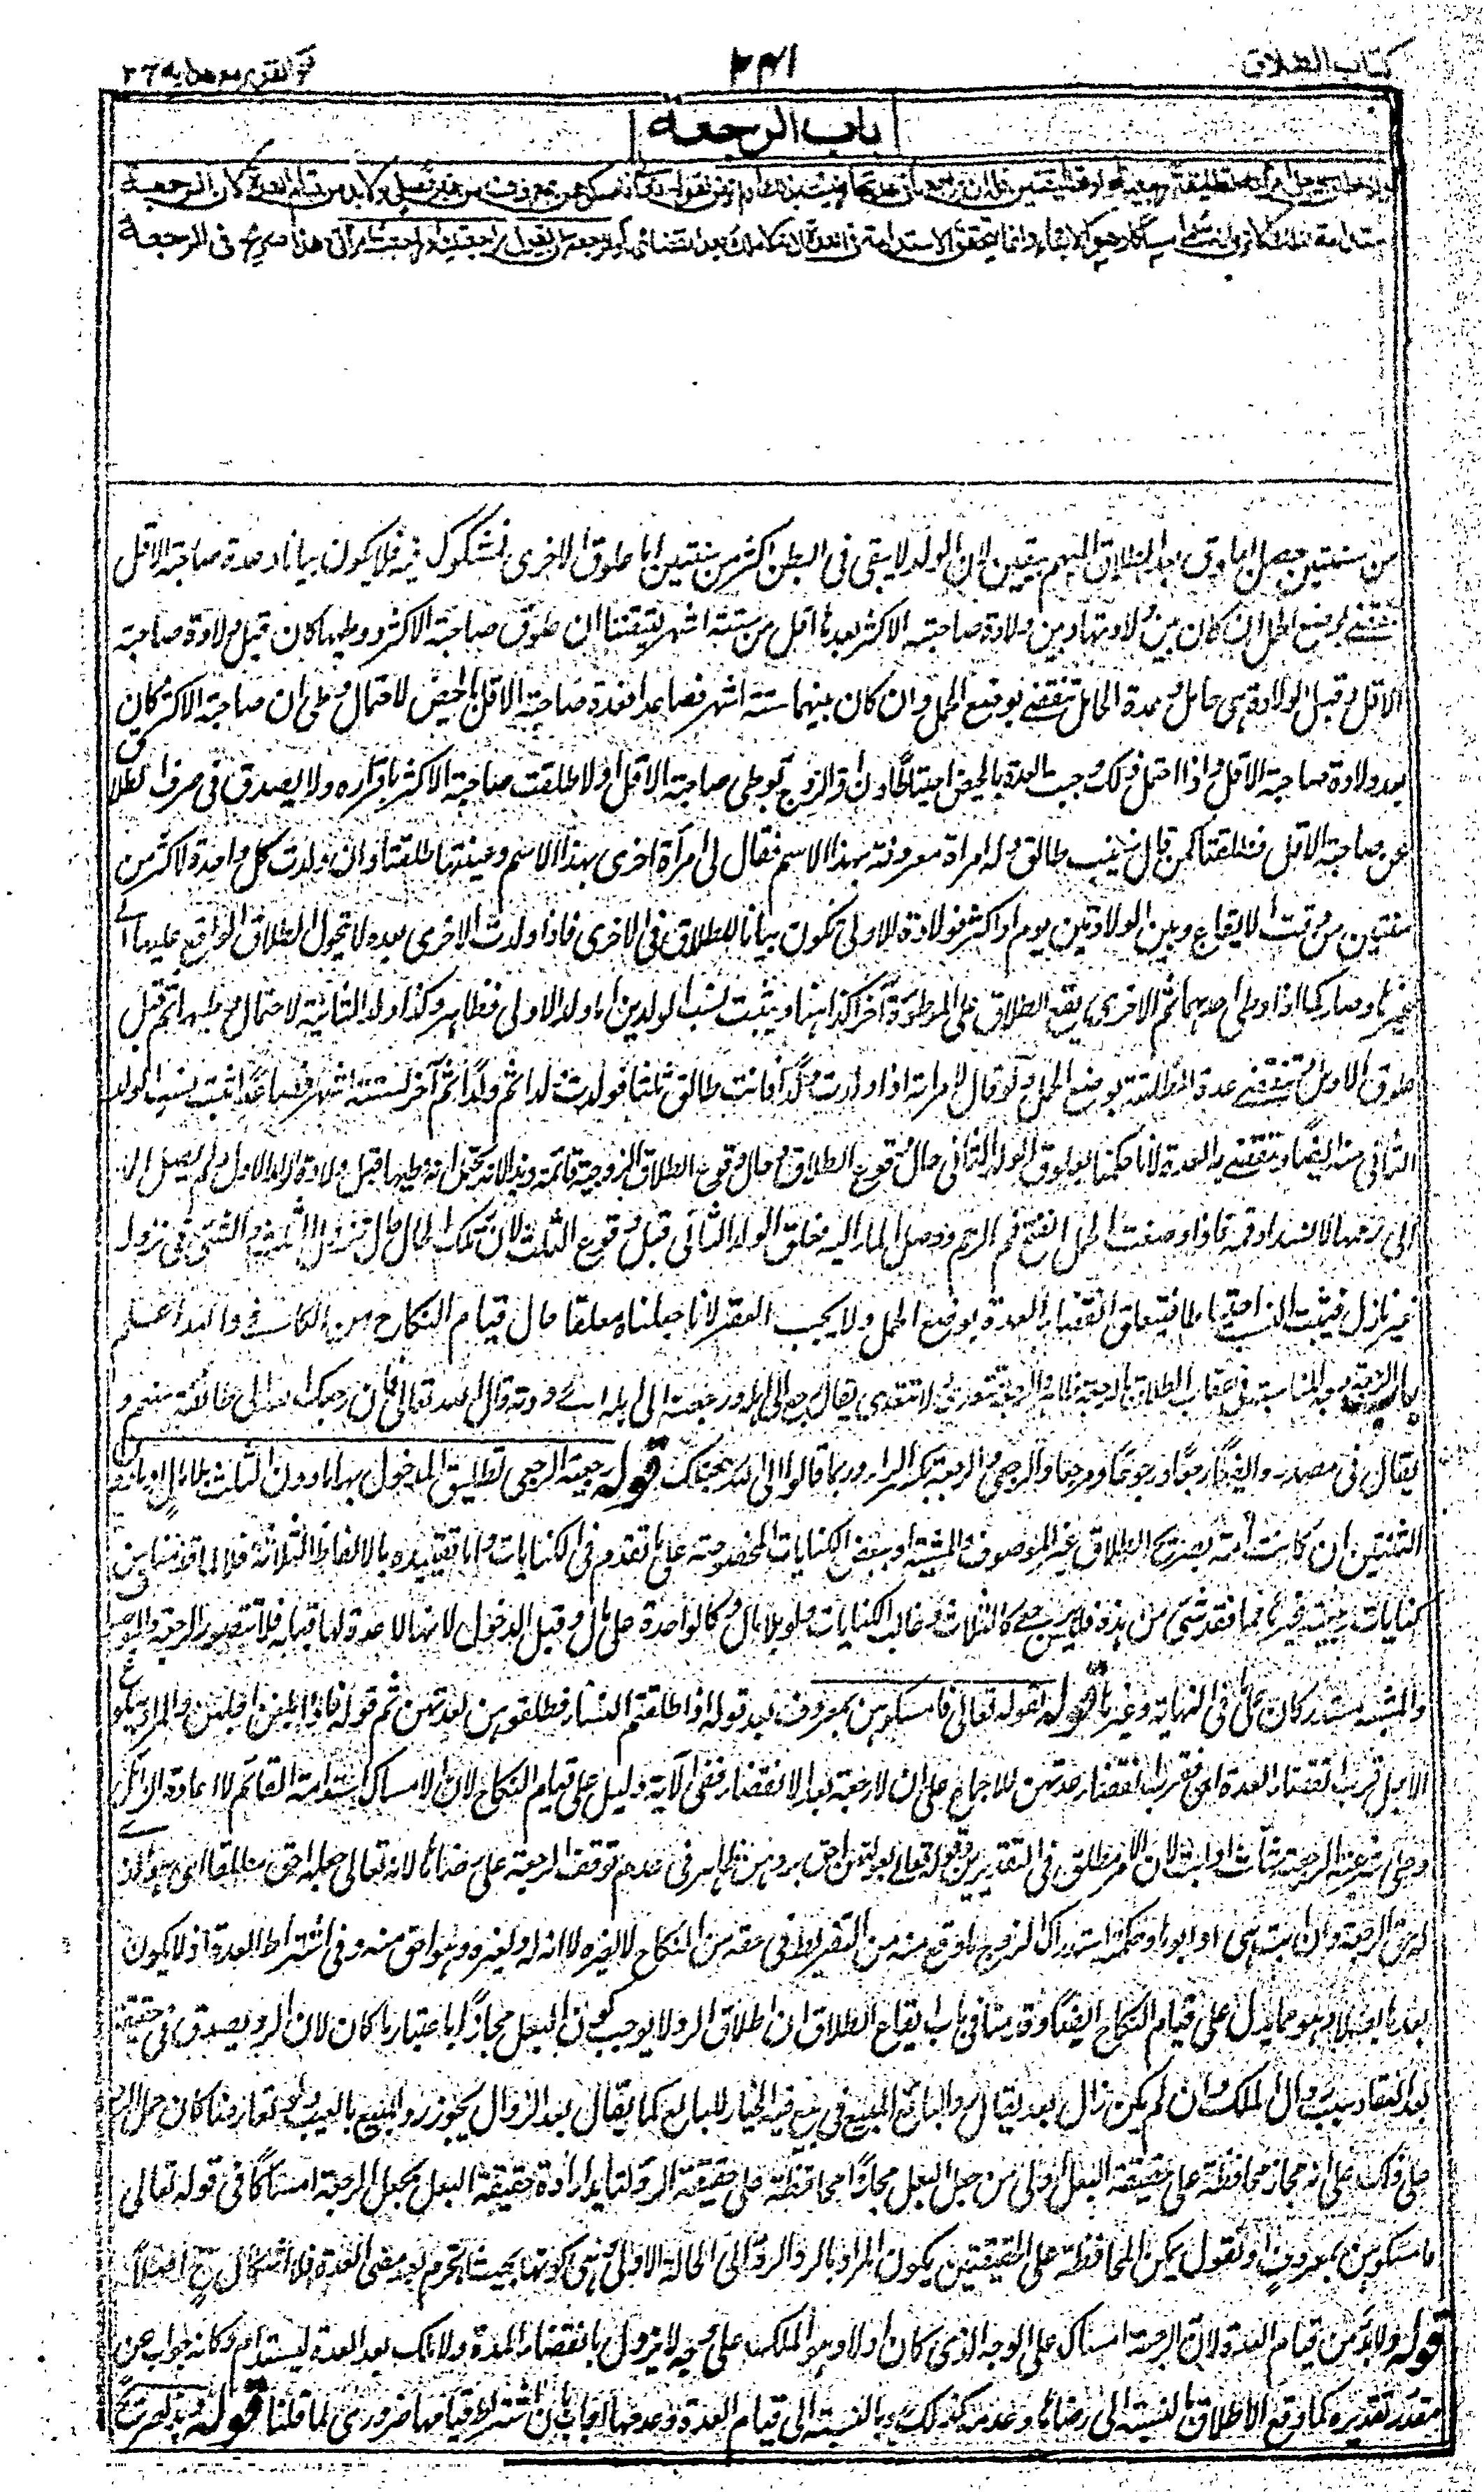 كتاب الطلاق
٢٤١
فتح القدير مع هداية ج ٢
باب الرجعة
واذا طلق الرجل امرأته تطليقة رجعية او تطليقتين فله ان يراجعها في عدتها رضيت بذلك او لم ترض لقوله تعالى فامسكوهن بمعروف من غير فصل ولا بد من قيام العدة لان الرجعة
استدامة الملك الا ترى انه سمى امساكا وهو الابقاء وانما يتحقق الاستدامة في العدة لانه لا ملك بعد انقضائها والرجعة ان يقول راجعتك او راجعت امرأتي وهذا صريح في الرجعة
من سنتين حصل العلوق بعد الطلاق المبهم بيقين لان الولد لا يبقى في البطن اكثر من سنتين اما علوق الاخرى فمشكوك فيه فلا يكون بيانا وعدة صاحبة الاقل
تنقضي بوضع الحمل ان كان بين ولادتها وبين ولادة صاحبة الاكثر بعدها اقل من ستة اشهر لتيقننا ان علوق صاحبة الاكثر ووطيها كان قبل ولادة صاحبة
الاقل وقبل الولادة هي حامل وعدة الحامل تنقضي بوضع الحمل وان كان بينهما ستة اشهر فصاعدا فعدة صاحبة الاقل بالحيض لاحتمال وطى ان صاحبة الاكثر كان
بعد ولادة صاحبة الاقل واذا احتمل ذلك وجبت العدة بالحيض احتياطا وان اقر الزوج بوطى صاحبة الاقل اولا طلقت صاحبة الاكثر باقراره ولا يصدق في صرف الطلاق
عن صاحبة الاقل فطلقتا كمن قال زينب طالق وله امرأة معروفة بهذا الاسم فقال لى امرأة اخرى بهذا الاسم وعينتها طلقتا وان ولدت كل واحدة لاكثر من
سنتين من وقت الايقاع وبين الولادتين يوم او اكثر فولادة الاولى تكون بيانا للطلاق في الاخرى فاذا ولدت الاخرى بعده لا تحول الطلاق الواقع عليها الى
غيرها وصار كما اذا وطى احدهما ثم الاخرى يقع الطلاق على الموطوءة آخرا كذا هنا ويثبت نسب الولدين اما ولد الاولى فظاهر وكذا ولد الثانية لاحتمال وطيها ثم قبل
علوق الاولى وتنقضي عدة المطلقة بوضع الحمل ولو قال لامرأته اذا ولدت ولدا فانت طالق ثلثا فولدت ولدا ثم ولدا ثم آخر لستة اشهر فصاعدا ثبت نسب الولد
الثاني منه ايضا وتنقضي به العدة لانا حكمنا بعلوق الولد الثاني حال وقوع الطلاق وحال وقوع الطلاق الزوجية قائمة وهذا لانه يحتمل انه وطيها قبل ولادة الولد الاول ولم يصل الماء
الى رحمها لانسداد فمه فاذا وضعت الحمل انفتح فم الرحم ووصل الماء اليه فخلق الولد الثاني قبل وقوع الثلث لان تلك الحال حال نزول الثلث والشئ في نزوله
غير نازل فيثبت النسب احتياطا فيتعلق انقضاء العدة بوضع الحمل ولا يجب العقر لانا جعلناه معلقا حال قيام النكاح من الكافي والله اعلم
باب الرجعة وجه المناسبة في اعقاب الطلاق الرجعة ظاهر والرجعة تتعدى ولا تتعدى يقال رجع الى اهله ورجعته الى اهله اي رددته وقال الله تعالى فان رجعك الله الى طائفة منهم و
يقال في مصدره ايضا رجعا ورجوعا ومرجعا والرجعى والرجعة بكسر الراء وربما قالوا الى الله رجعناك قوله رجعية الرجعي تطليق المدخول بها ما دون الثلث بلا مال
الثنتين ان كانت امة بصريح الطلاق غير الموصوف والمشبه او ببعض الكنايات المخصوصة على ما تقدم في الكنايات واما تقييده بالالفاظ الثلاثة فلا لما قدمنا من
كنايات رجعية غيرها فما فقد شئ من هذه فليس برجعي كالثلاث وغالب الكنايات ولو بلا مال وكالواحدة على مال وقبل الدخول لانها لا عدة لها قبله فلا تتصور الرجعة والموصوف
والمشبه مستدركان على ما في النهاية وغيرها قوله لقوله تعالى فامسكوهن بمعروف بعد قوله اذا طلقتم النساء فطلقوهن لعدتهن ثم قوله فاذا بلغن اجلهن والمراد ببلوغ
الاجل قرب انقضاء العدة اى فقرب انقضاء عدتهن للاجماع على ان لا رجعة بعد الانقضاء ففي الآية دليل على قيام النكاح لان الامساك استدامة القائم لا اعادة الزائل
وعلى شرعية الرجعة شاءت او ابت لان الامر مطلق في التقديرين وقوله تعالى وبعولتهن احق بردهن ظاهر في عدم توقف الرجعة على رضاها لانه تعالى جعله احق مطلقا اى هو الذي
له حق الرجعة وان ابت هى او ابوها وحكمته استدراك الزوج ما وقع منه من التفريط في حقه من النكاح لا لغيره لا انه له ولغيره وهو احق منه وفي اشتراط العدة اذ لا يكون
بعدها بعلا وهو مما يدل على قيام النكاح ايضا وقدمنا في باب ايقاع الطلاق ان اطلاق الرد لا يوجب كون البعل مجازا باعتبار ما كان لان الرد يصدق في حقيقة
بعد انعقاد سبب زوال الملك وان لم يكن زال بعد يقال رد البائع المبيع في بيع فيه الخيار للبائع كما يقال بعد الزوال يجوز رد المبيع بالعيب ولو تعارضنا كان حمل الرد
على ذلك على انه مجاز محافظة على حقيقة البعل اولى من جعل البعل مجازا محافظة على حقيقة الرد لتأيد ارادة حقيقة البعل بجعل الرجعة امساكا في قوله تعالى
فامسكوهن بمعروف او نقول يمكن المحافظة على الحقيقتين بكون المراد بالرد الرد الى الحالة الاولى وهى كونها بحيث لا تحرم بعد مضى العدة فلا اشكال ح اصلا
قوله ولا بد من قيام العدة لان الرجعة امساك على الوجه الذى كان اولا وهو الملك على وجه لا يزول بانقضاء المدة ولا ملك بعد العدة ليستدام وكانه جواب عن
مقدر تقديره كما وقع الاطلاق بالنسبة الى رضاها وعدمه كذلك وبالنسبة الى قيام العدة وعدمها اجاب بان اشتراط قيامها ضرورى لما قلنا قوله وهذا صريح